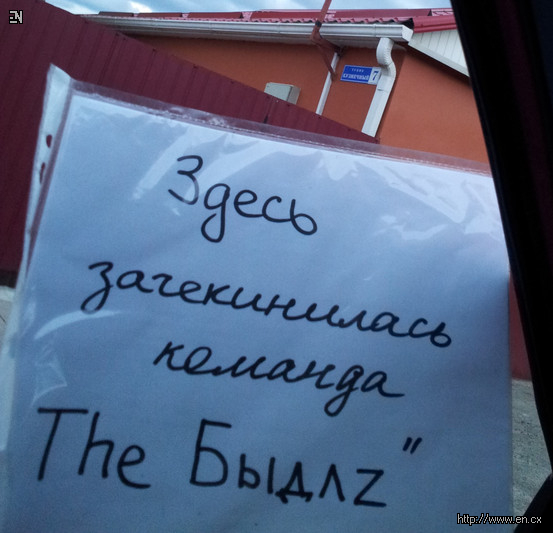 EN
7
Здесь
зачекинилась
команда
The Быдлz"
http://www.en.cx